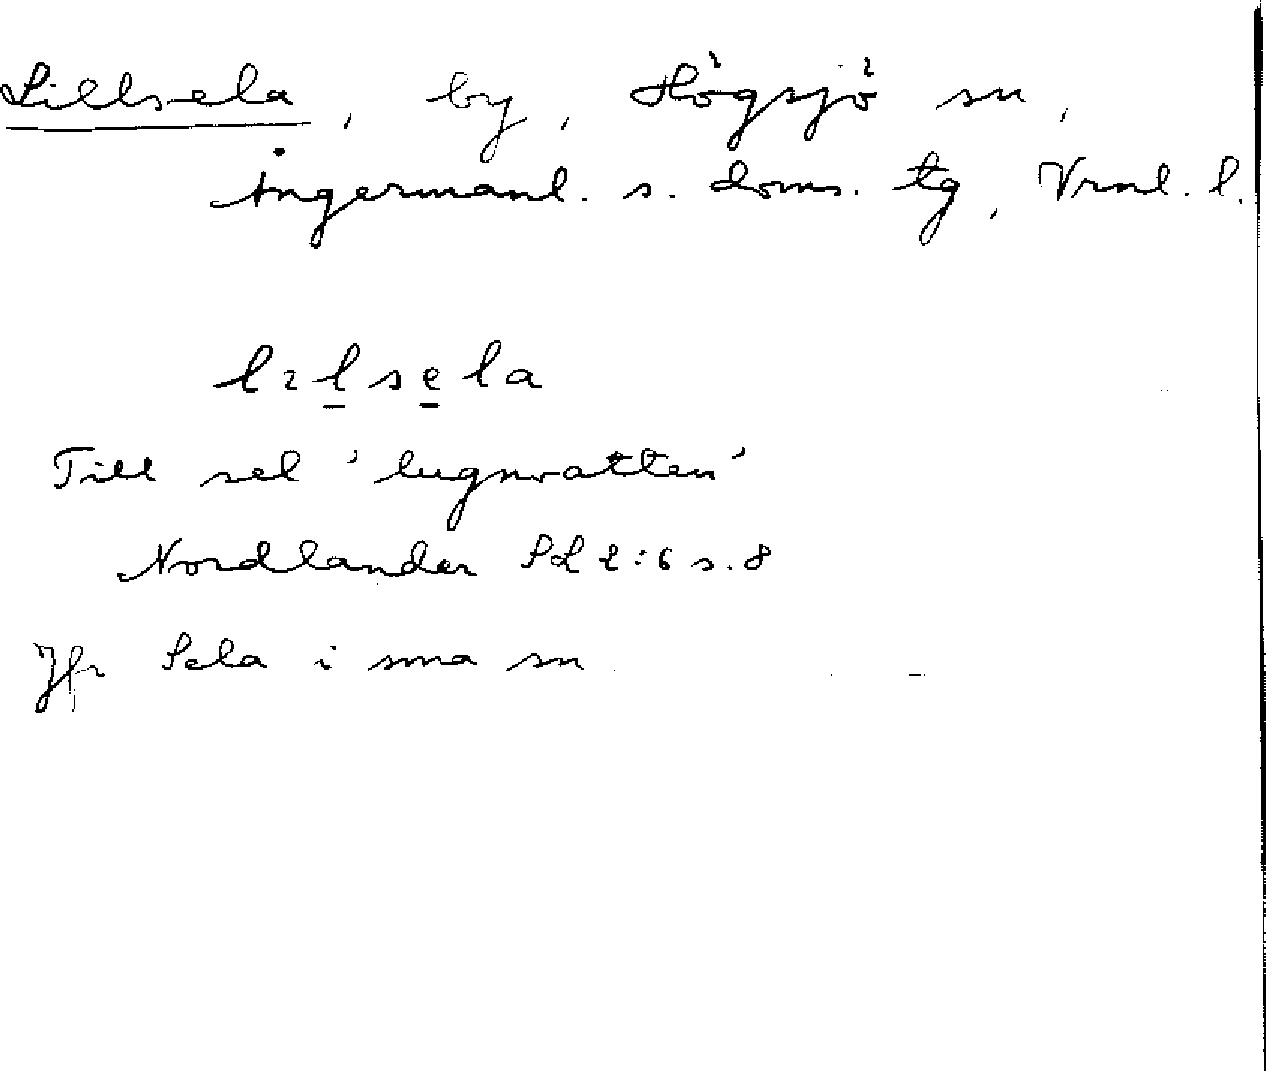 Lillsela, by, Högsjö sn,
Ångermanl. s. doms. tg, Vrnl. l.
lılsela
Till sel 'lugnvatten'
Nordlander PL 2:6 s. 8
Jfr Sela i sma sn